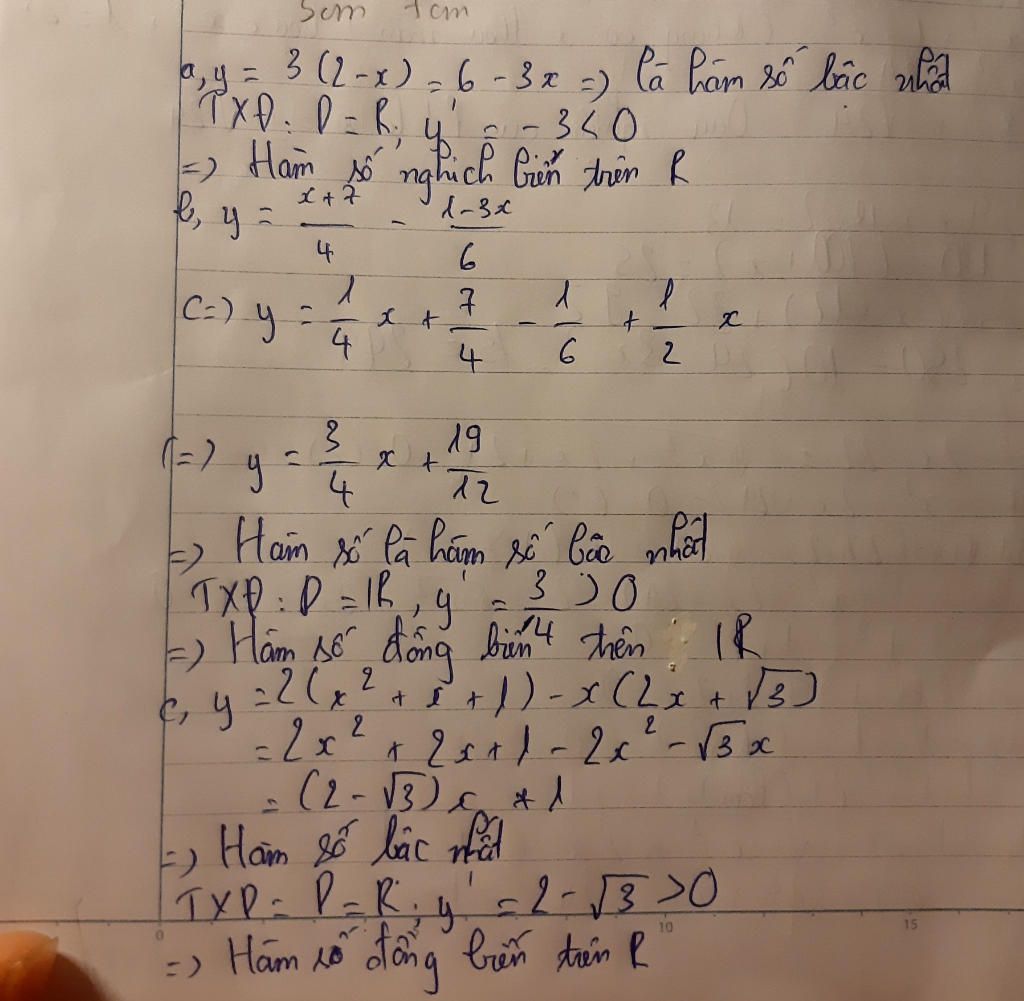 a, y = 3(2-x) = 6 - 3x => là hàm số bậc nhất
TXĐ: D = R, y' = -3 < 0
=> Hàm số nghịch biến trên R
b, y = \frac{x+7}{4} - \frac{1-3x}{6}
<=> y = \frac{1}{4}x + \frac{7}{4} - \frac{1}{6} + \frac{1}{2}x
<=> y = \frac{3}{4}x + \frac{19}{12}
=> Hàm số là hàm số bậc nhất
TXĐ: D = IR, y' = \frac{3}{4} > 0
=> Hàm số đồng biến trên IR
c, y = 2(x² + x + 1) - x(2x + √3)
= 2x² + 2x + 1 - 2x² - √3x
= (2 - √3)x + 1
=> Hàm số bậc nhất
TXD = D = R, y' = 2 - √3 > 0
0 10 15
=> Hàm số đồng biến trên R